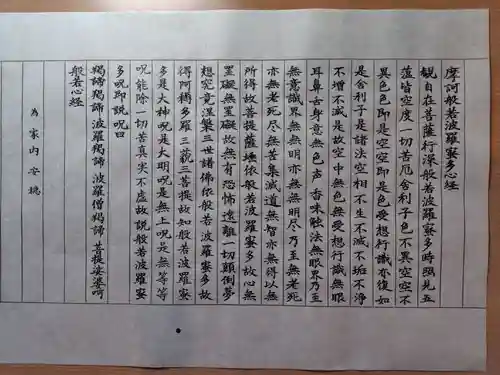 摩訶般若波羅蜜多心経
観自在菩薩行深般若波羅蜜多時照見五
蘊皆空度一切苦厄舎利子色不異空空不
異色色即是空空即是色受想行識亦復如
是舎利子是諸法空相不生不滅不垢不浄
不増不減是故空中無色無受想行識無眼
耳鼻舌身意無色声香味触法無眼界乃至
無意識界無無明亦無無明尽乃至無老死
亦無老死尽無苦集滅道無智亦無得以無
所得故菩提薩埵依般若波羅蜜多故心無
罣礙無罣礙故無有恐怖遠離一切顛倒夢
想究竟涅槃三世諸佛依般若波羅蜜多故
得阿耨多羅三藐三菩提故知般若波羅蜜
多是大神呪是大明呪是無上呪是無等等
呪能除一切苦真実不虚故説般若波羅蜜
多呪即説呪曰
羯諦羯諦波羅羯諦波羅僧羯諦菩提娑婆呵
般若心経
為家内安穏